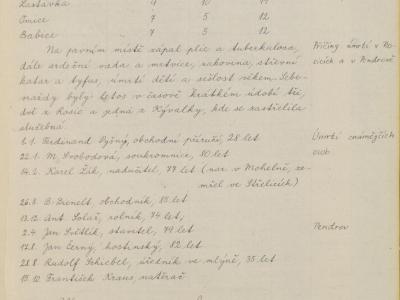 Zastávka 9 10 19
Tmice 7 5 12
Babice 7 5 12
Na prvním místě zápal plic a tuberkulosa,
dále srdeční vada a mrtvice, rakovina, střevní
katar a tyfus, úmrtí dětí a sešlost věkem. Sebe-
vraždy byly letos v časově krátkém údobí tři,
dvě z Rosic a jedna z Kývalky, kde se zastřelila
služebná.
Příčiny úmrtí v Ro-
sicích a v Pendrově
8.1. Ferdinand Vyšný, obchodní příručí, 28 let
22.1. M. Svobodová, soukromnice, 80 let
14.2. Karel Žák, nadučitel, 77 let (nar. v Mohelně, ze-
mřel ve Střelicích)
Úmrtí známějších
osob
26.8. B. Dienelt, obchodník, 85 let
13.12. Ant. Solař, rolník, 74 let,
2.4. Jan Světlík, stavitel, 49 let
Pendrov
17.8. Jan Černý, hostinský, 82 let
28.8. Rudolf Schiebel, úředník ve mlýně, 35 let
15.12. František Kraus, natěrač